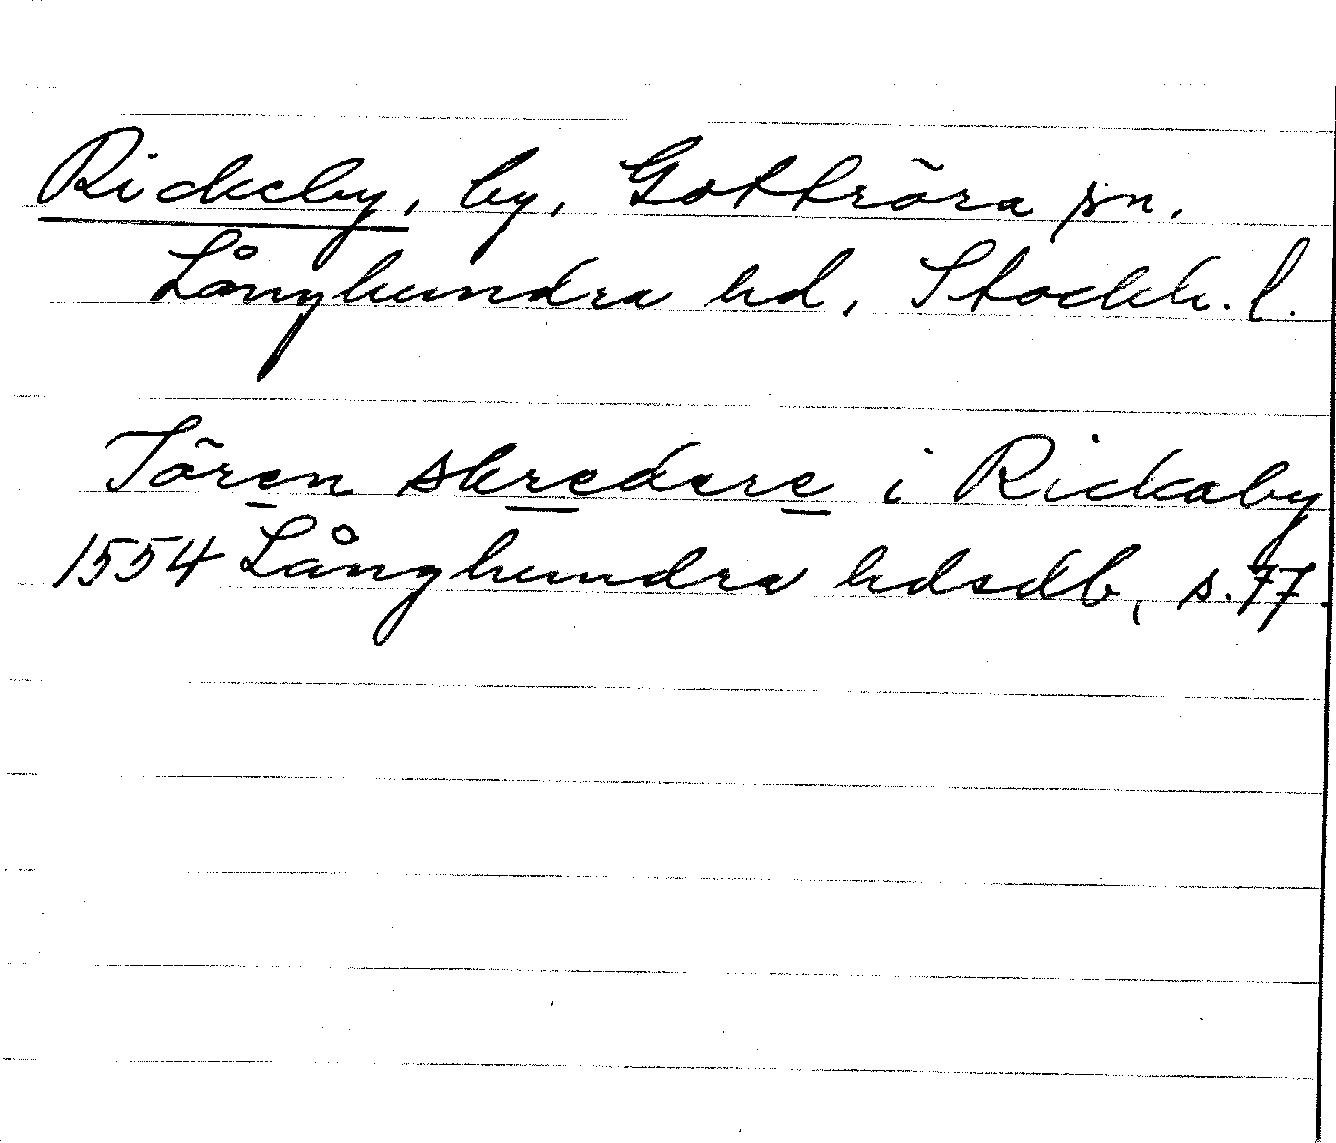 Rickeby, by, Gottröra sn.
Långhundra hd, Stockh. l.
Tören skredere i Rickaby
1554 Långhundra hdsdb, s. 77.